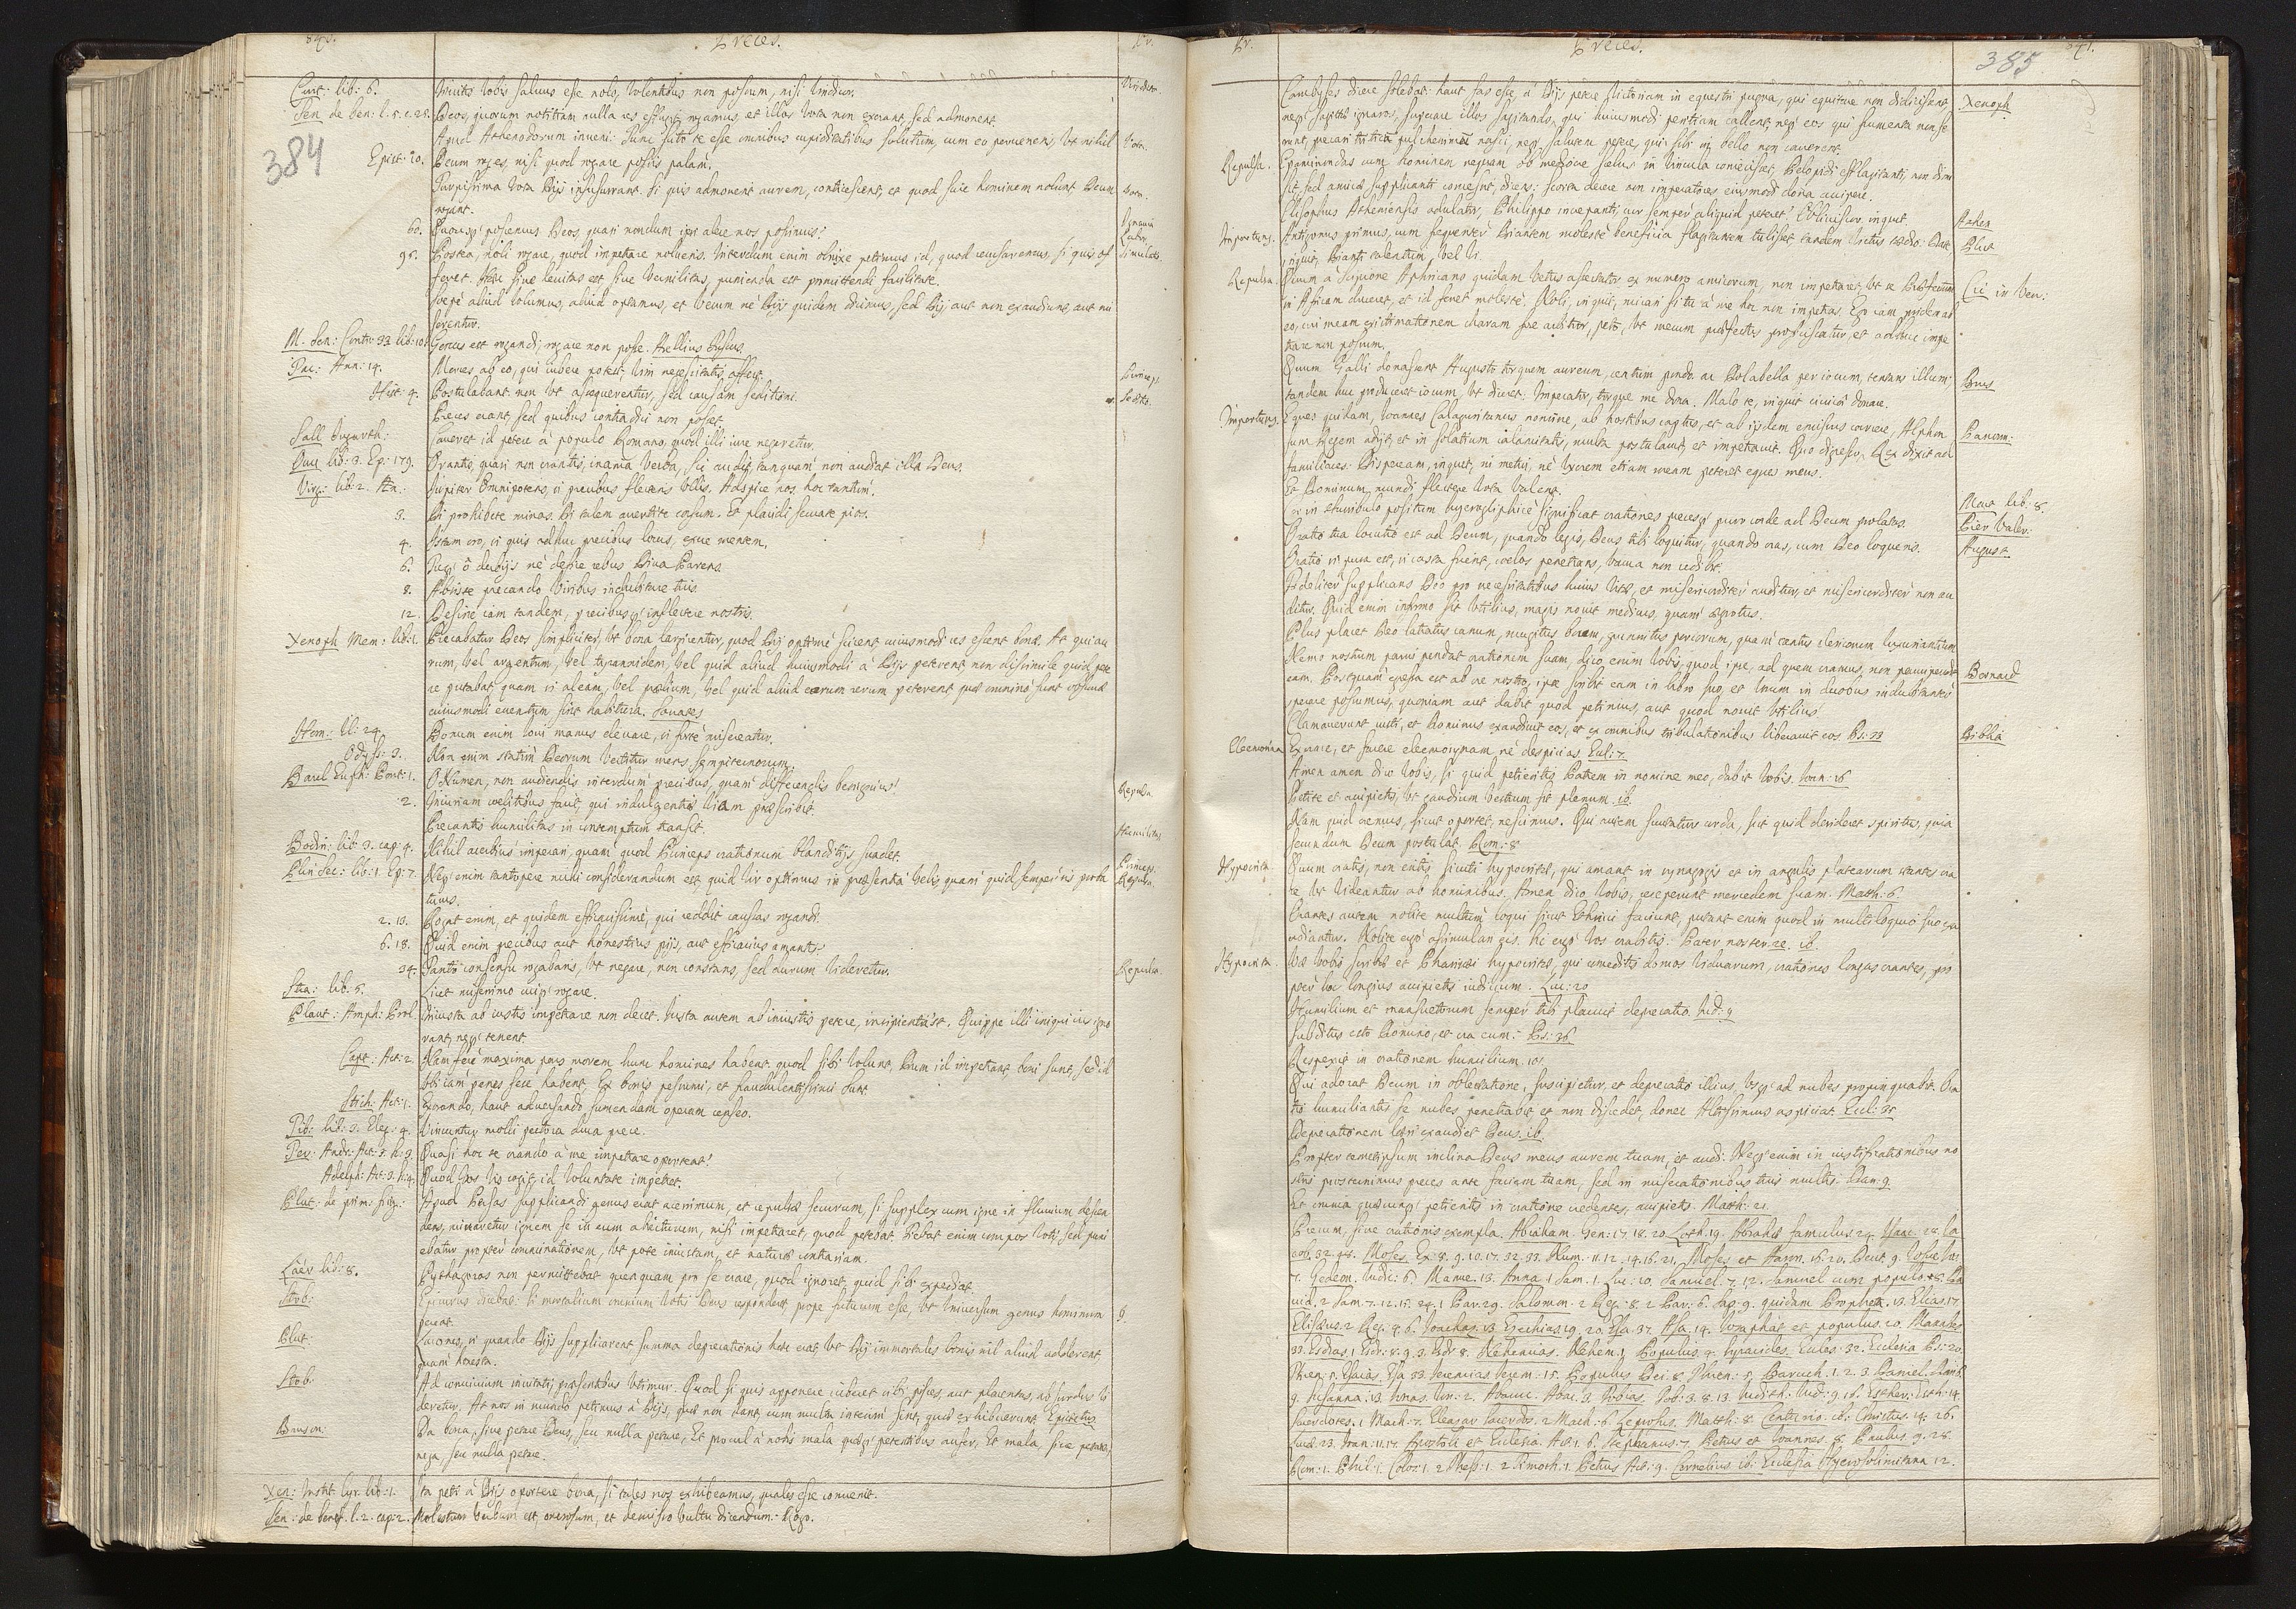 Preces.
384
Curt: lib: 6. Invitis vobis salvus esse nolo, volentibus non possum, nisi
Sen de ben: l. 5. c. 25. Deos, quorum notitiam nulla res effugit, rogamus, et illos vota non exorant, sed admonent.
Apud Athenodorum inveni: Tunc scito te esse omnibus cupiditatibus solutum, cum eo perveneris, ut nihil
Epist: 10. Deum roges, nisi quod rogare possis palam.
Turpissima vota Dijs insusurrant. Si quis admoverit aurem, conticescent, et quod scire hominem nolunt Deum
60. Quousq poscemus Deos, quasi nondum ipsi alere nos possimus?
95. Postea, noli rogare, quod impetrare nolueris. Interdum enim obnixe petimus id, quod recusaremus, si quis of
ferret. Haec sive levitas est sive vernilitas, punienda est promittendi facilitate.
Saepe aliud volumus, aliud optamus, et verum ne Dijs quidem dicimus, sed Dij aut non exaudiunt, aut mi
serentur.
M. Sen: Contr: 33 lib: 10. Genus est rogandi, rogare non posse. Arellius Fuscus.
Tac: Ann: 14. Merces ab eo, qui iubere potest, vim necessitatis affert.
Hist: 4. Postulabant non ut assequerentur, sed causam seditioni.
Preces erant, sed quibus contradici non posset.
Sall Iugurth: Caveret id petere à populo Romano, quod illi iure negaretur.
lib: 3. Ep: 179. Orantis, quasi non orantis, inania verba, Sic audit, tanquam non audiat illa Deus.
Virg: lib: 2. Aen: Iupiter omnipotens, si precibus flecteris ullis, Adspice nos, hoc tantum.
3. Di prohibete minas. Di talem avertite casum. Et placidi servate pios.
4. Istam oro, si quis adhuc precibus locus, exue mentem.
6. Tuq ô dubijs ne defice rebus Diva Parens.
8. Absiste precando Viribus indubitare tuis.
12. Desine iam tandem, precibusq inflectere nostris.
Xenoph Mem: lib: 1. Precabatur Deos simpliciter, ut bona largirentur, quod Dij optimè scirent, cuiusmodi res essent bonae. At qui au
rum, vel argentum, vel tyrannidem, vel quid aliud huiusmodi à Dijs peterent, non dissimile quid pete
re putabat, quam si aleam, vel praelium, vel quid aliud earum rerum peterent quae omnino sunt obscurae
cuiusmodi eventum sint habitura. Socrates
Hom: Il: 24. Bonum enim Iovi manus elevare, si fortè misereatur.
Odyss: 3. Non enim statim Deorum vertitur mens sempiternorum.
Barcl Euph: Part: 1. O Numen, non audiendis interdum precibus, quam differendis benignius!
2. Iniuriam coelitibus facit, qui indulgentiae viam praescribit.
Precantis humilitas in contemptum transit.
Bodin: lib 3. cap: 4. Nihil acerbius imperari, quam quod Princeps orationum blanditijs suadet.
Plin Sec: lib: 1. Ep: 7. Neq enim tantopere mihi considerandum est, quid vir optimus in praesentia velis, quam quid semper sis proba
turus.
2. 13. Rogat enim, et quidem efficacissimè, qui reddit causas rogandi.
6. 18. Quid enim precibus aut honestius pijs, aut efficacius amantis?
34. Tanto consensu rogabaris, ut negare, non constans, sed durum videretur.
lib. 5. Licet miserrimo cuiq rogare.
Plaut: Amph: Prol. Iniusta ab iustis impetrare non decet. Iusta autem ab iniustis petere, insipientia'st. Quippe illi iniqui ius igno
rant, neq tenent
Capt: Act: 2 Nam ferè maxima pars morem hunc homines habent, quod sibi volunt, Dum id impetrant, boni sunt, sed id
ubi iam penes sese habent, Ex bonis pessimi, et fraudulentissimi sunt.
Stich Act: 1. Exorando, haut adversando sumendam operam censeo.
Tib: lib: 3. Eleg: 4. Vincuntur molli pectora dura prece.
Ter: Andr: Act: 3. Quasi hoc te orando à me impetrare oporteat!
Adelph: Act: 3. Quod vos vis cogit, id voluntate impetret.
Plut: de prim: frig: Apud Persas supplicandi genus erat acerrimum, et repulsae securum, si supplex cum igne in flumen descen
dens, minaretur ignem se in eum abiecturum, nisi impetraret, quod petebat. Fiebat enim compos voti, sed puni
ebatur propter comminationem, ut pote iniustam, et naturae contrariam.
Laër lib: 8. Pythagoras non permittebat quenquam pro se orare, quod ignoret, quid sibi expediat.
Stob: Epicurus dicebat: Si mortalium omnium votis Deus responderet, prope futurum esse, ut universum genus hominum
pereat.
Plut: Lacones, si quando Dijs supplicarent summa deprecationis haec erat, ut Dij immortales bonis nil aliud adderent,
quam honesta.
Stob: Ad convivium invitati, praesentibus utimur. Quod si quis apponere iuberet sibi pisces, aut placentas, absurdus vi
deretur. At nos in mundo petimus à Dijs, quae non dant, cum multa interim sint, quae exhibuerunt. Epictetus
Da bona, sive petare Deus, seu nulla petare, Et procul à nobis mala quoq petentibus aufer, Et mala, sive petare,
nega, seu nulla petare.
Xen: Instit: Cyr: lib: 1. Ita peti à Dijs oportere bona, si tales nos exhibeamus, quales esse convenit.
Sen: de benef. l. 2. cap: 2. Molestum verbum est, onerosum, et demisso vultu dicendum: Rogo.
Votum.
Princeps
Seditio.
Repulsa.
Humilitas
Princeps.
Repulsa.
Repulsa.
Pr. Preces.
385
Cambyses dicere solebat: haut fas esse, à Dijs petere victoriam in equestri pugna, qui equitare non didicissent Xenoph
neq sagittis ignaros, superare illos sagittando, qui huiusmodi peritiam callent, neq eos qui frumenta non se
runt, precari pulcherrima nasci, neq salutem petere, qui sibi in bello non caverent.
Repulsa. Epaminondas cum hominem nequam ob mediocre scelus in vincula coniecisset, Pelopidi efflagitanti, non dimi
sit, sed amicae supplicanti concessit, dicens: scorta decere non imperatores eiusmodi dona accipere.
Clisophus Atheniensis adulator, Philippo increpanti, cur semper aliquid peteret, Obliviscor, inquit. Athen
Importun: Antigonus primus, cum frequenter Biantem molestè beneficia flagitantem tulisset, tandem victus taedio: Date, Plut
inquit, Bianti talentum, vel vi.
Repulsa. Quum à Scipione Aphricano quidam vetus assectator ex numero amicorum, non impetraret, ut se Praefectum Cic in Ver:
in Africam duceret, et id ferret molestè. Noli, inquit, mirari si tu à me hoc non impetras. Ego iam pridem ab
eo, cui meam existimationem charam fore arbitror, peto, ut mecum praefectus proficiscatur, et adhuc impe
trare non possum.
Quum Galli donassent Augusto torquem aureum, centum pondo, ac Dolabella per iocum, tentans illum,
tandem huc produceret iocum, ut diceret: Imperator, torque me dona. Malo te, inquit civicâ donare.
Importun. Eques quidam, Ioannes Calaguritanus nomine, ab hostibus captus, et ab ijsdem emissus carcere, Alphon
sum Regem adijt, et in solatium calamitatis, multa postulavit, et impetravit. Quo digresso, Rex dixit ad Panorm:
familiares: Dispeream, inquit, ni metui, ne uxorem etiam meam peteret eques meus.
Et Dominum mundi flectere vota valent. Mart lib. 8.
Cor in thuribulo positum hyeroglyphicè significat orationes precesq puro corde ad Deum prolatas. Pier Valer:
Oratio tua locutio est ad Deum, quando legis, Deus tibi loquitur, quando oras, cum Deo loqueris. August
Oratio si pura est, si casta fuerit, coelos penetrans, vacua non redibit.
Fideliter supplicans Deo pro necessitatibus huius vitae, et misericorditer auditur, et misericorditer non au
ditur. Quid enim infirmo sit utilius, magis novit medicus, quam aegrotus.
Plus placet Deo latratus canum, mugitus boum, grunnitus porcorum, quam cantus clericorum luxuriantium
Nemo nostrum parvi pendat orationem suam, dico enim vobis, quod ipse, ad quem oramus, non parvi pendit Bernard
eam. Postquam egressa est ab ore nostro, ipse scribit eam in libro suo, et unum in duobus indubitanter
sperare possumus, quoniam aut dabit quod petimus, aut quod novit utilius.
Clamaverunt iusti, et Dominus exaudivit eos, et ex omnibus tribulationibus liberavit eos. Ps: 33 Biblia
Eleemosina Exorare, et facere eleemosynam ne despicias. Eccl: 7.
Amen amen dico vobis, si quid petieritis Patrem in nomine meo, dabit vobis. Ioan: 16
Petite et accipietis, ut gaudium vestrum sit plenum. ib.
Nam quid oremus, sicut oportet, nescimus. Qui autem scrutatur corda, scit quid desideret spiritus, quia
secundum Deum postulat. Rom: 8
Hypocrita. Quum oratis, non eritis sicuti hypocritae, qui amant in synagogis et in angulis platearum stantes ora
re, ut videantur ab hominibus. Amen dico vobis, receperunt mercedem suam. Matth: 6
Orantes autem nolite multum loqui sicut Ethnici faciunt, putant enim quod in multiloquio suo exa
udiantur. Nolite ergo assimulari eis. Sic ergo vos orabitis: Pater noster. ib.
Hypocrita. Vae vobis scribae et Pharisaei hypocritae, qui comeditis domos viduarum, orationes longas orantes, pro
pter hoc longius accipietis iudicium. Luc: 20
Humilium et mansuetorum semper tibi placuit deprecatio. Iud: 9
Subditus esto Domino, et ora eum. Ps: 36
Respexit in orationem humilium. 101.
Qui adorat Deum in oblectatione, suscipietur, et deprecatio illius, usq ad nubes propinquabit. Ora
tio humiliantis se nubes penetrabit et non discedet, donec Altissimus aspiciat. Eccl: 35
Deprecationem laesi exaudiet Deus. ib.
Propter temetipsum inclina Deus meus aurem tuam, et audi: Neq enim in iustificationibus no
stris prosternimus preces ante faciem tuam, sed in miserationibus tuis multis. Dan: 9
Et omnia quaecunq petieritis in oratione credentes, accipietis. Matth: 21
Precum, sive orationis exempla. Abraham. Gen: 17. 18. 20. Loth. 19. Abrahae famulus. 24. Isaac. 25. Ia
cob. 32. 48. Moses. Ex: 8. 9. 10. 17. 32. 33. Num: 11. 12. 14. 16. 21. Moses et Aaron. 16. 20. Deut 9. Iosue. Ios:
7. Gedeon. Iudic: 6. Manue. 13. Anna. 1 Sam: 1. Luc: 10. Samuel. 7. 12. Samuel cum populo. 8. Da
uid. 2 Sam: 7. 12. 15. 24. 1 Par: 29. Salomon. 2 Reg: 8. 2 Par: 6. Sap: 9. quidam Propheta. 13. Elias. 17.
Elisaeus. 2 Reg: 4. 6. Ioachas. 13. Ezechias. 19. 20. Esa: 37. Asa. 14. Iosaphat et populus. 20. Manasses
33. Esdras. 1 Esdr: 8. 9. 3. Esdr 8. Nehemias. Nehem: 1. Populus. 9. Syracides. Eccles: 32. Ecclesia Ps: 20.
Thren: 5. Esaias. Esa 33. Ieremias Ierem: 15. Populus Dei: 8. Thren: 5. Baruch. 1. 2. 3. Daniel.
9. Susanna: 13. Ionas. Ion: 2. Abacuc. Abac: 3. Tobias. Tob: 3. 8. 13. Iudith. Iud: 9. 16. Esther. Esth: 14.
Sacerdotes. 1 Mach: 7. Eleazar Sacerdos. 2 Mach: 6. Leprosus. Matth: 8. Centurio. ib. Christus. 14. 26.
Luc: 23. Ioan: 11. 17. Apostoli et Ecclesia. Act: 1. 6. Stephanus. 7. Petrus et Ioannes. 8. Paulus. 9. 28.
Rom: 1. Phil: 1. Coloss: 1. 2 Thess: 1. 2 Timoth: 1. Petrus Act: 9. Cornelius. ib: Ecclesia Hyerosolimitana 12.